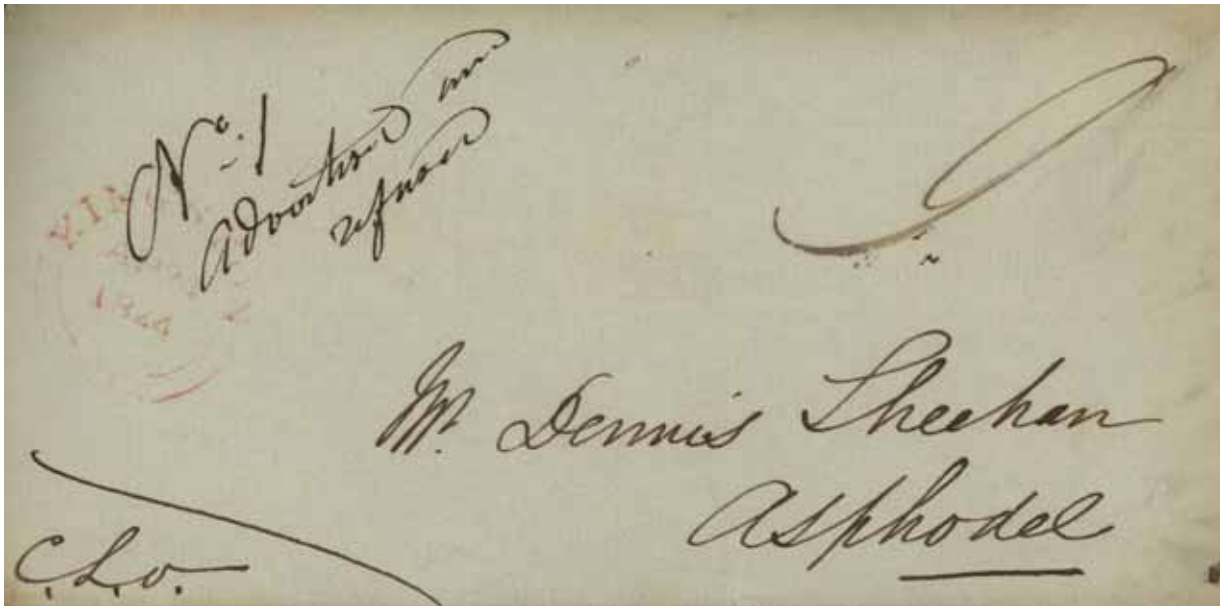 No. 1
Advertised and
refused
Mr. Dennis Sheehan
Asphodel
C.L.O.